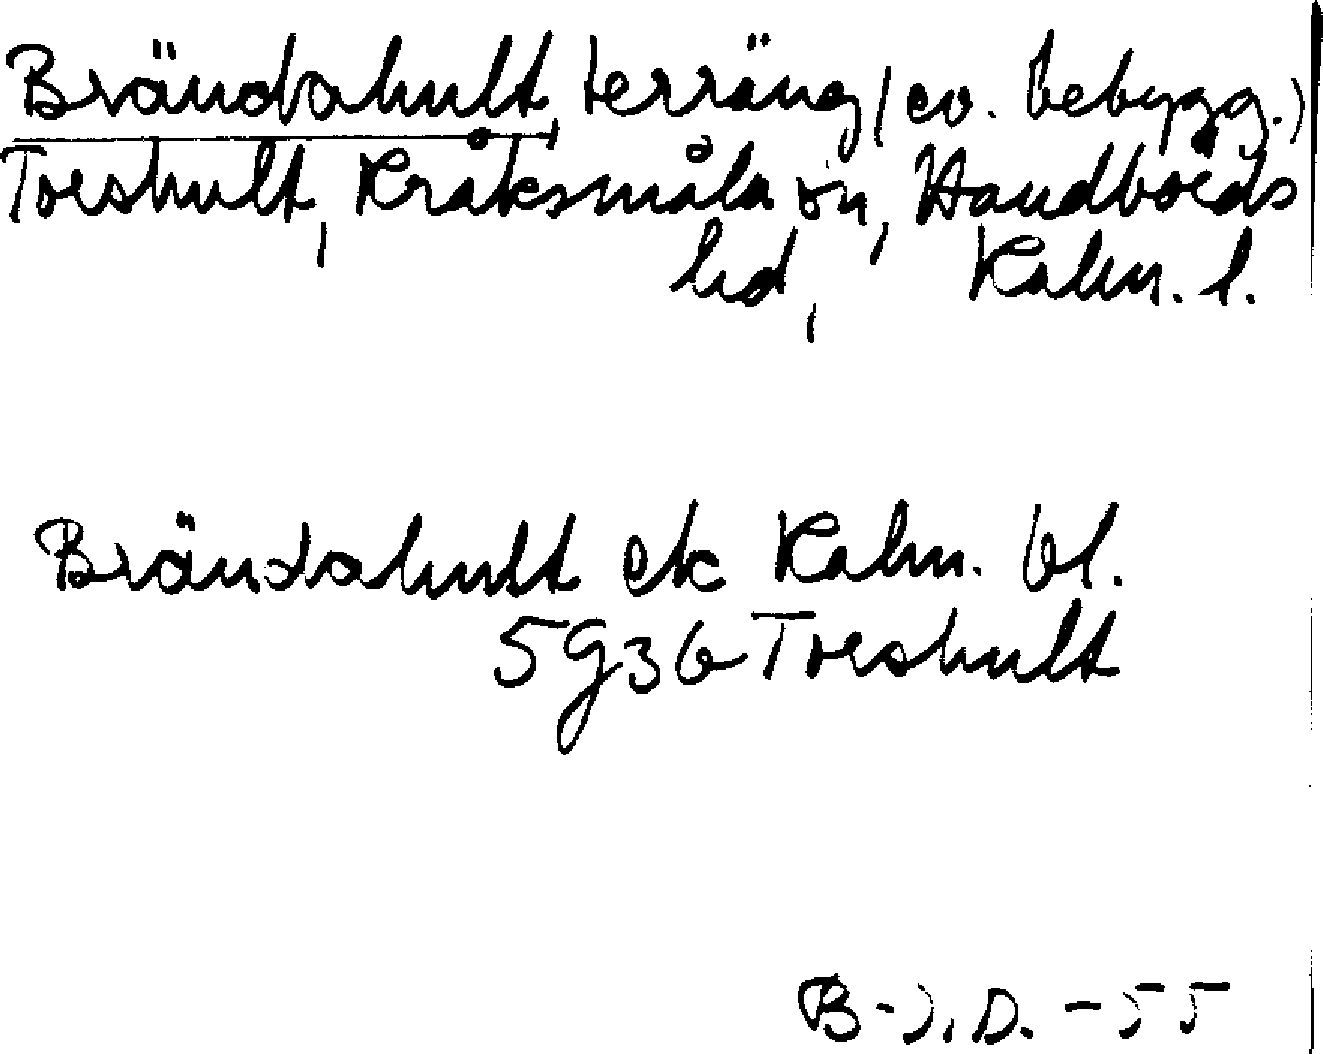 Brändahult, terräng (ev. bebygg.)
Toreshult, Kråksmåla sn, Handbörds
hd, Kalm. l.
Brändahult ek Kalm. bl.
5G3b Toreshult
B-J.D. -55